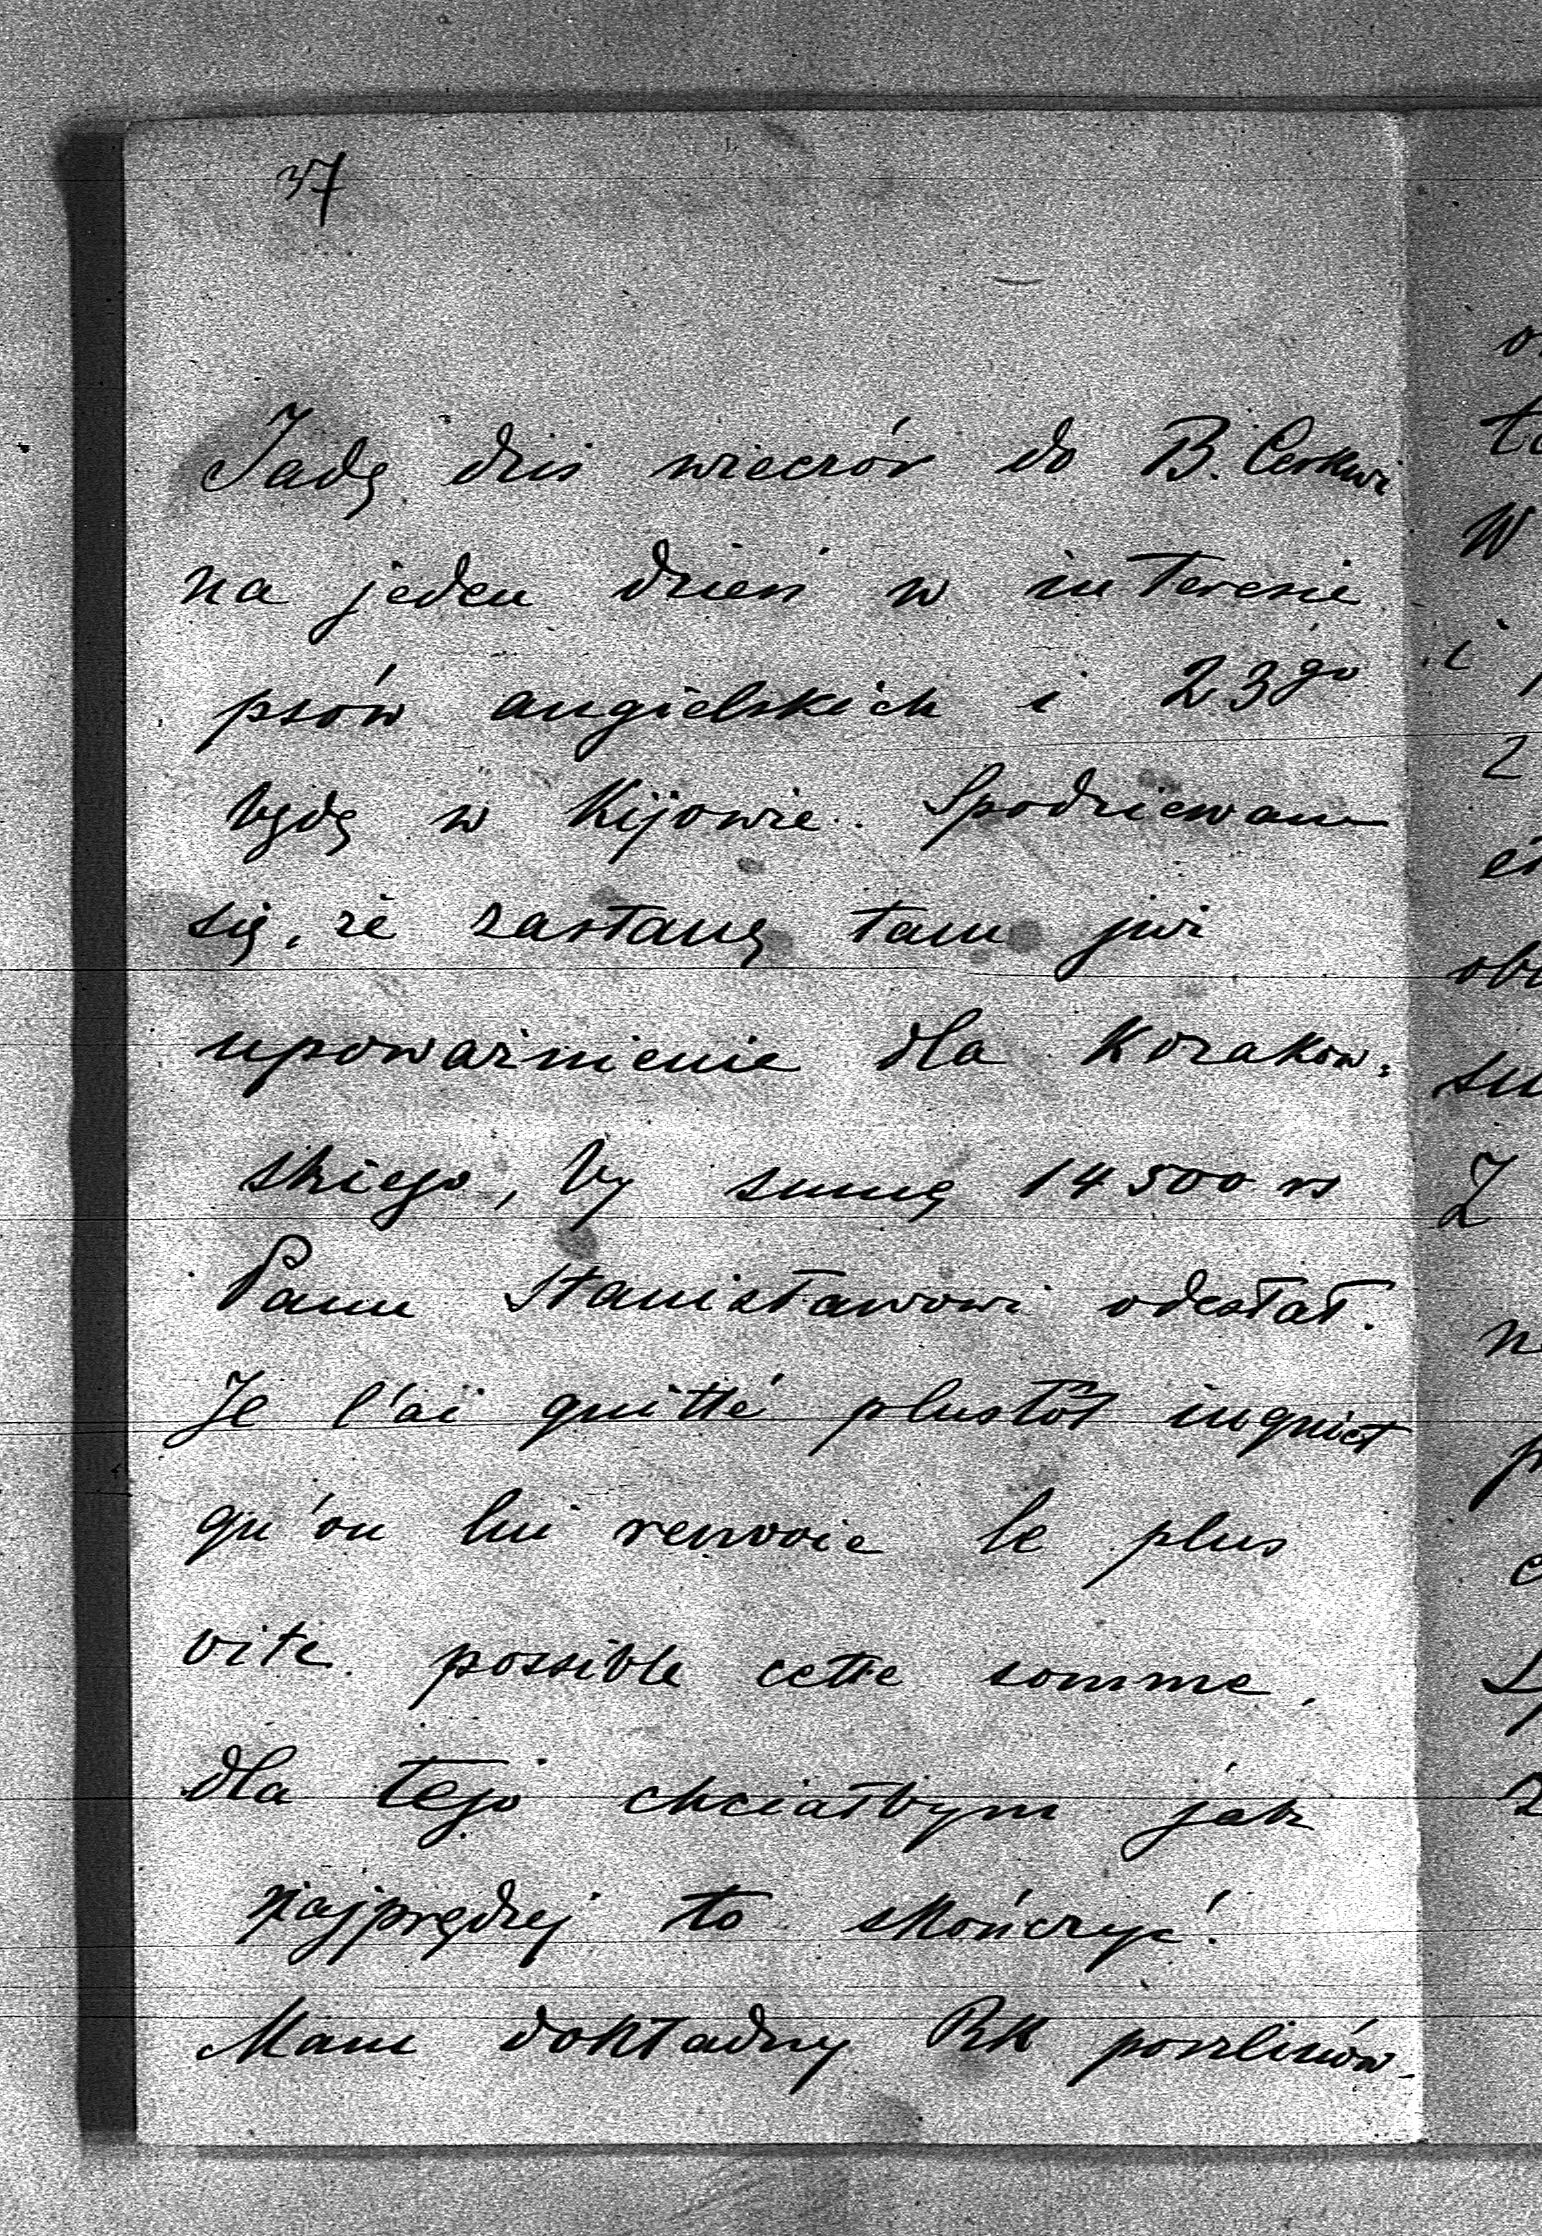 37
Jadę dziś wieczór do B. Cerkwi
na jeden dzień w interesie
psów angielskich i 23go
będę w Kijowie. Spodziewam
się, że zastanę tam już
upoważnienie dla Kozakow-
skiego, by sumę 14500 rs
Panu Stanisławowi odesłał.
Je l'ai quitté plustôt inquiet
qu'on lui renvoie le plus
vite possible cette somme,
dla tego chciałbym jak
najprędzej to skończyć!
Mam dokładny Rk